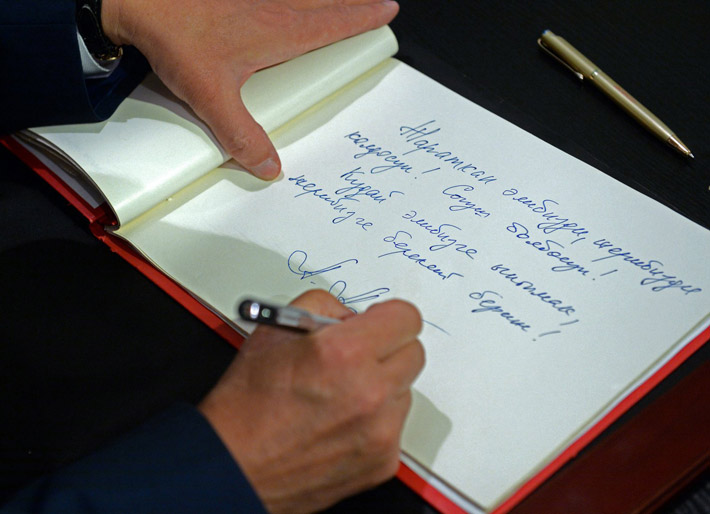 Жараткан элибизди, жерибизди
колдосун! Согуш болбосун!
Кудай элибизге ынтымак,
жерибизге берекет берсин!